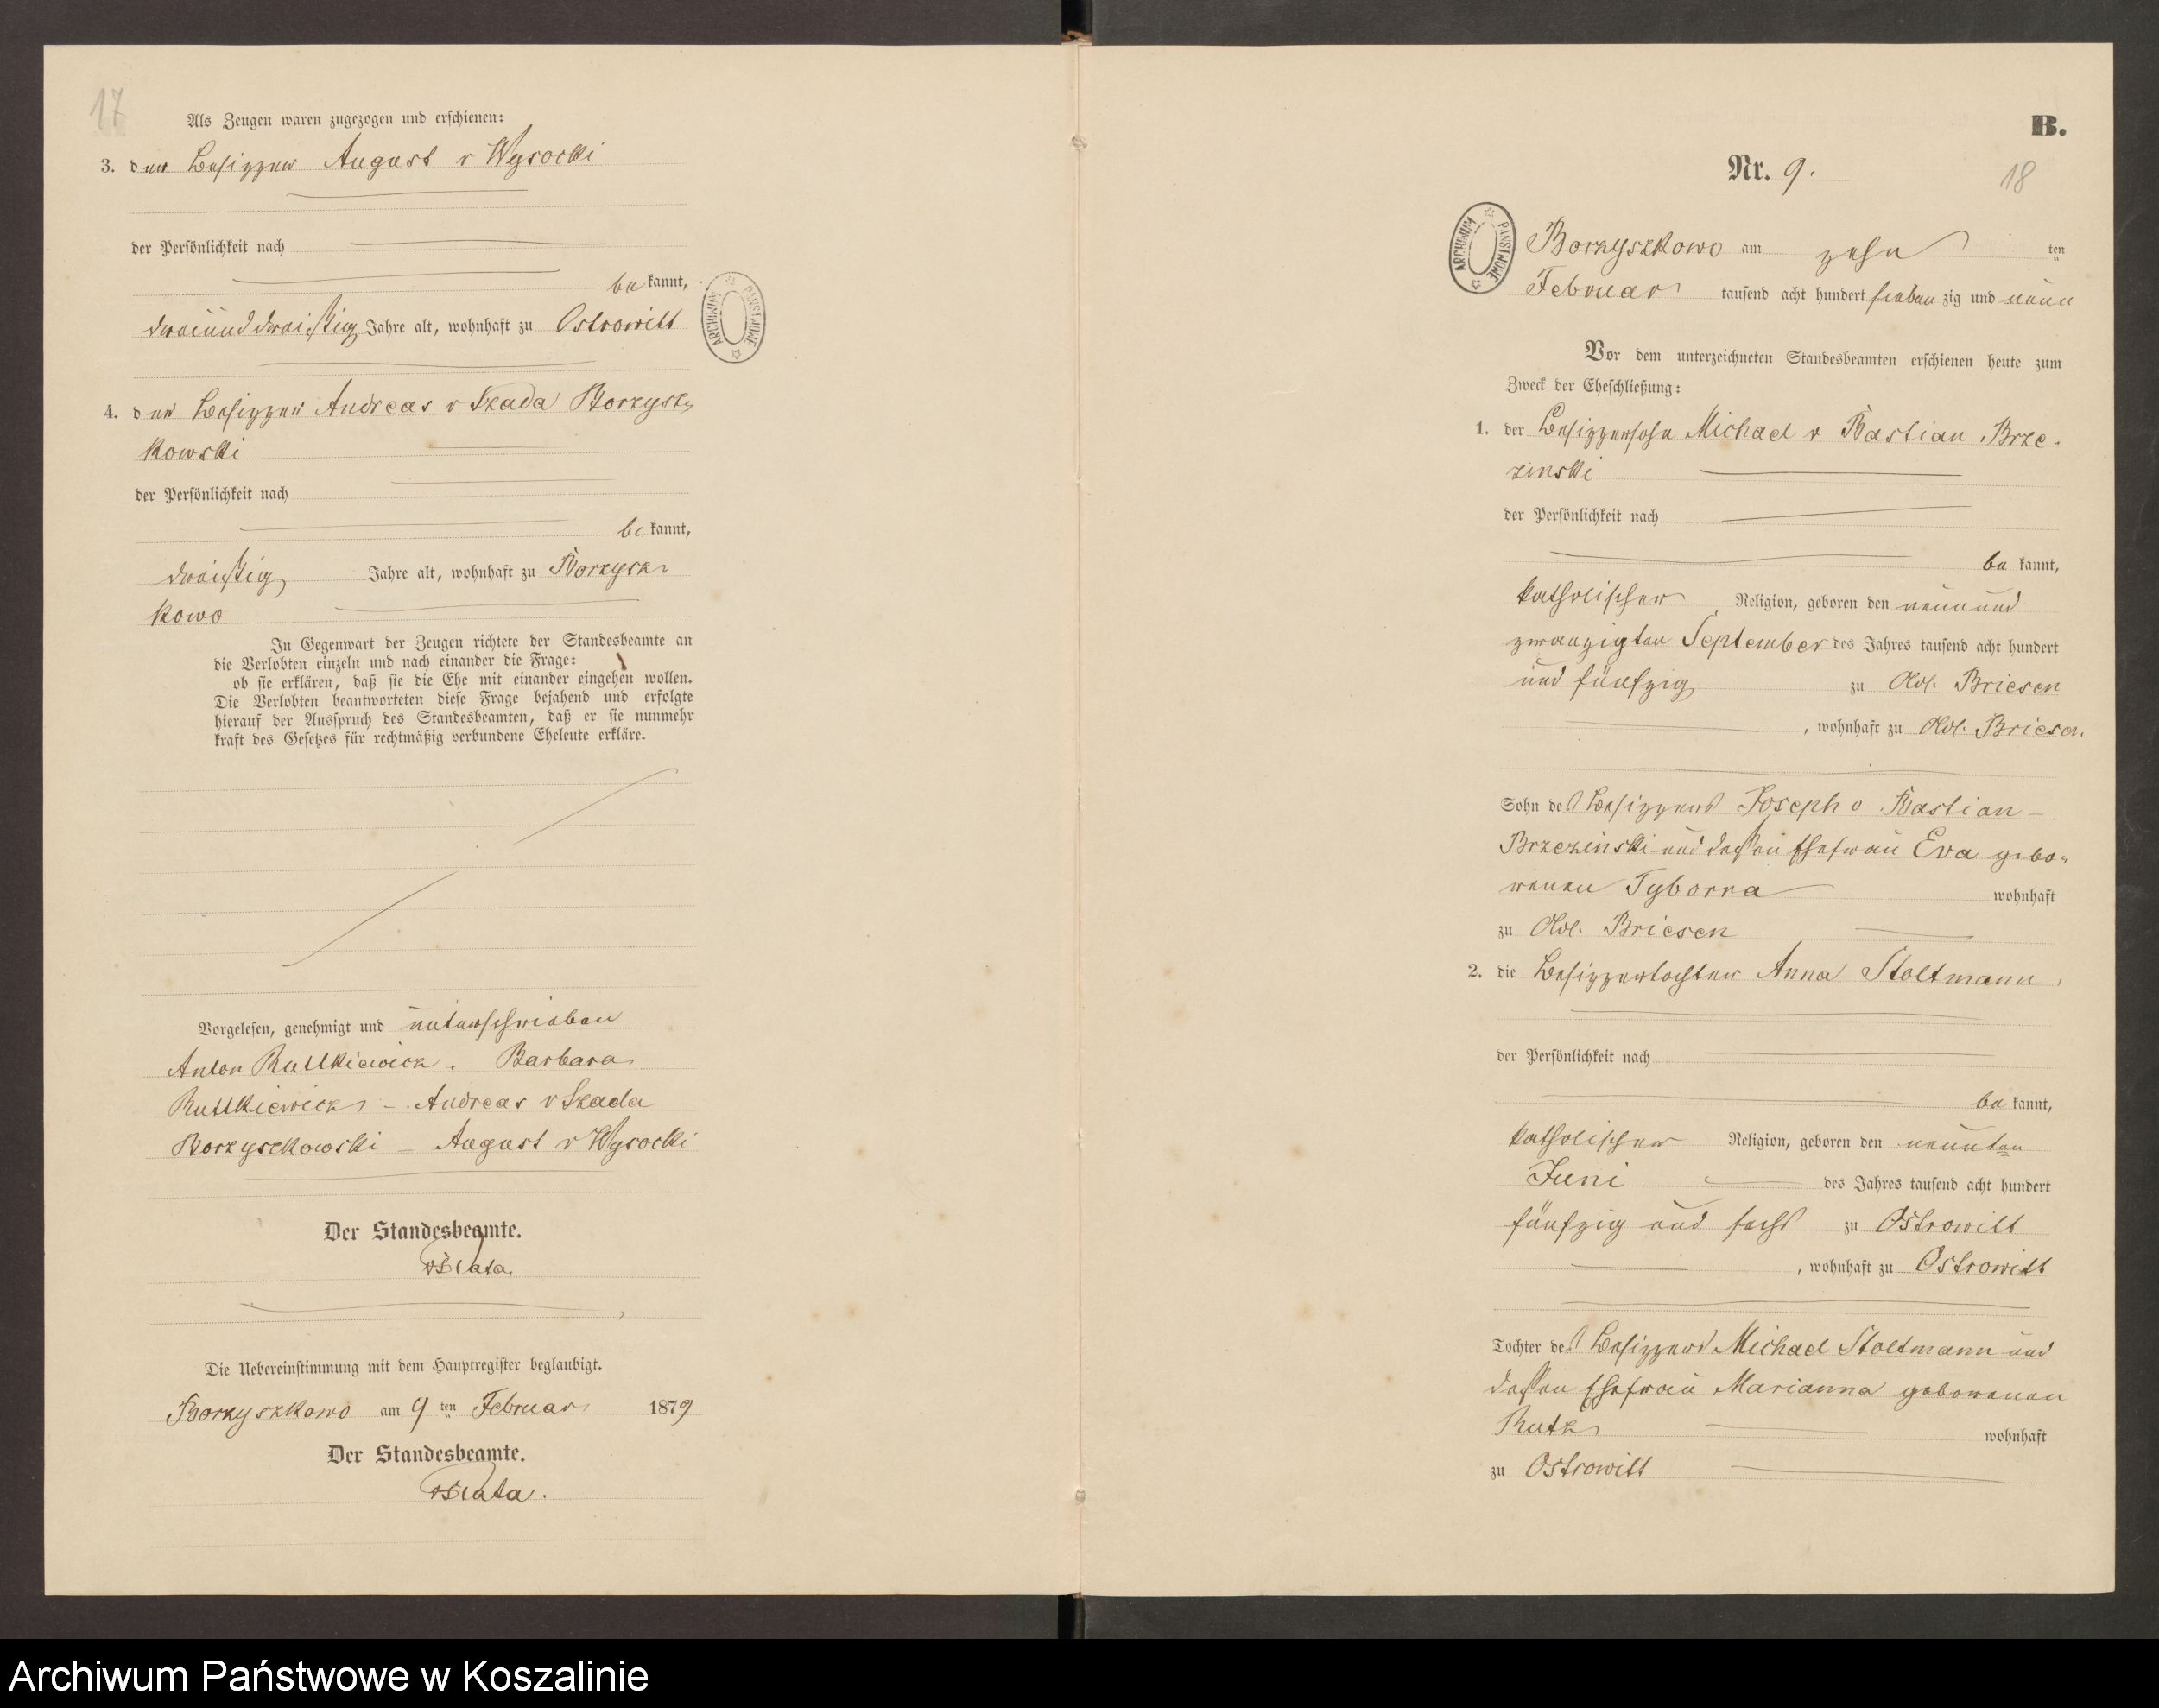 17
Als Zeugen waren zugezogen und erschienen:
3. der Besitzer August v Wysocki
der Persönlichkeit nach
be kannt,
dreiunddreißig Jahre alt, wohnhaft zu Ostrowitt
4. der Besitzer Andreas v Skada Borzysz-
kowski
der Persönlichkeit nach
be kannt,
dreißig Jahre alt, wohnhaft zu Borzysz-
kowo
In Gegenwart der Zeugen richtete der Standesbeamte an
die Verlobten einzeln und nach einander die Frage:
ob sie erklären, daß sie die Ehe mit einander eingehen wollen.
Die Verlobten beantworteten diese Frage bejahend und erfolgte
hierauf der Ausspruch des Standesbeamten, daß er sie nunmehr
kraft des Gesetzes für rechtmäßig verbundene Eheleute erkläre.
Vorgelesen, genehmigt und unterschrieben
Anton Rutkiewicz. Barbara
Rutkiewicz – Andreas v Skada
Borzyszkowski – August v Wysocki
Der Standesbeamte.
Die Uebereinstimmung mit dem Hauptregister beglaubigt.
Borzyszkowo am 9 ten Februar 1879
Der Standesbeamte.
ARCHIWUM PAŃSTWOWE
B.
Nr. 9.
18
ARCHIWUM PAŃSTWOWE
Borzyszkowo am zehn ten
Februar tausend acht hundert sieben zig und neun
Vor dem unterzeichneten Standesbeamten erschienen heute zum
Zweck der Eheschließung:
1. der Besitzersohn Michael v Bastian Brze-
zinski
der Persönlichkeit nach
be kannt,
katholischer Religion, geboren den neunund
zwanzigten September des Jahres tausend acht hundert
und fünfzig zu Adl. Briesen
, wohnhaft zu Adl. Briesen.
Sohn des Besitzers Joseph v Bastian-
Brzezinski und dessen Ehefrau Eva gebo-
renen Tyborra wohnhaft
zu Adl. Briesen
2. die Besitzertochter Anna Stoltmann
der Persönlichkeit nach
be kannt,
katholischer Religion, geboren den neunten
Juni des Jahres tausend acht hundert
fünfzig und sechs zu Ostrowitt
, wohnhaft zu Ostrowitt
Tochter des Besitzers Michael Stoltmann und
dessen Ehefrau Marianna geborenen
Rutz wohnhaft
zu Ostrowitt
Archiwum Państwowe w Koszalinie